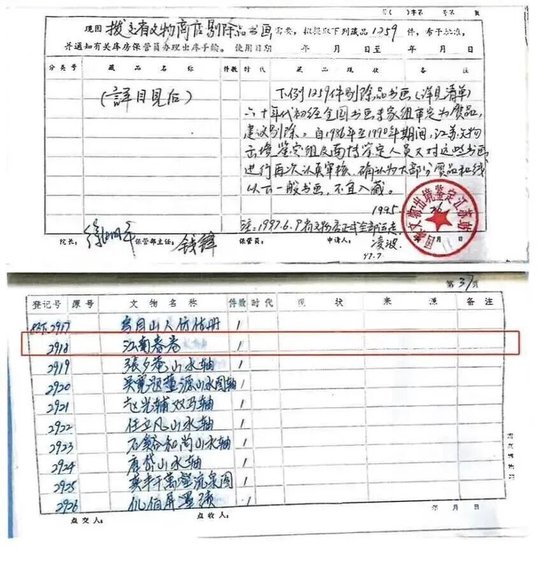 现因 拨交省文物商店剔除品书画 需要，拟提取下列藏品 1259 件，希予批准，
并通知有关库房保管员办理出库手续。 使用日期 年 月 日至 年 月 日
分类号 藏品名称 件数 时代 藏品现状 备注
(详目见后)
下列1259件剔除品书画(详见清单)
六十年代初经全国书画专家组审定为赝品，
建议剔除。自1986年至1990年期间，江苏文物
出境鉴定组及南博鉴定人员又对这些书画
进行再次认真审核，确认为大部分赝品和线
以下一般书画，不宜入藏。
1995
国家文物出境鉴定江苏站
院长： 保管部主任： 钱锋 保管员： 申请人： 凌波
97.7
第 31 页
登记号 原号 文物名称 件数 时代 现状 来源 备注
2917 仿古册 1
2918 江南春卷 1
2919 张夕庵山水轴 1
2920 吴宽题董源山水图轴 1
2921 赵光辅双马轴 1
2922 任立凡山水轴 1
2923 石谿和尚山水轴 1
2924 唐岱山水轴 1
2925 奚丰千万壑流泉图 1
2926 仇伯屏墨 1
点交人： 点收人： 年 月 日